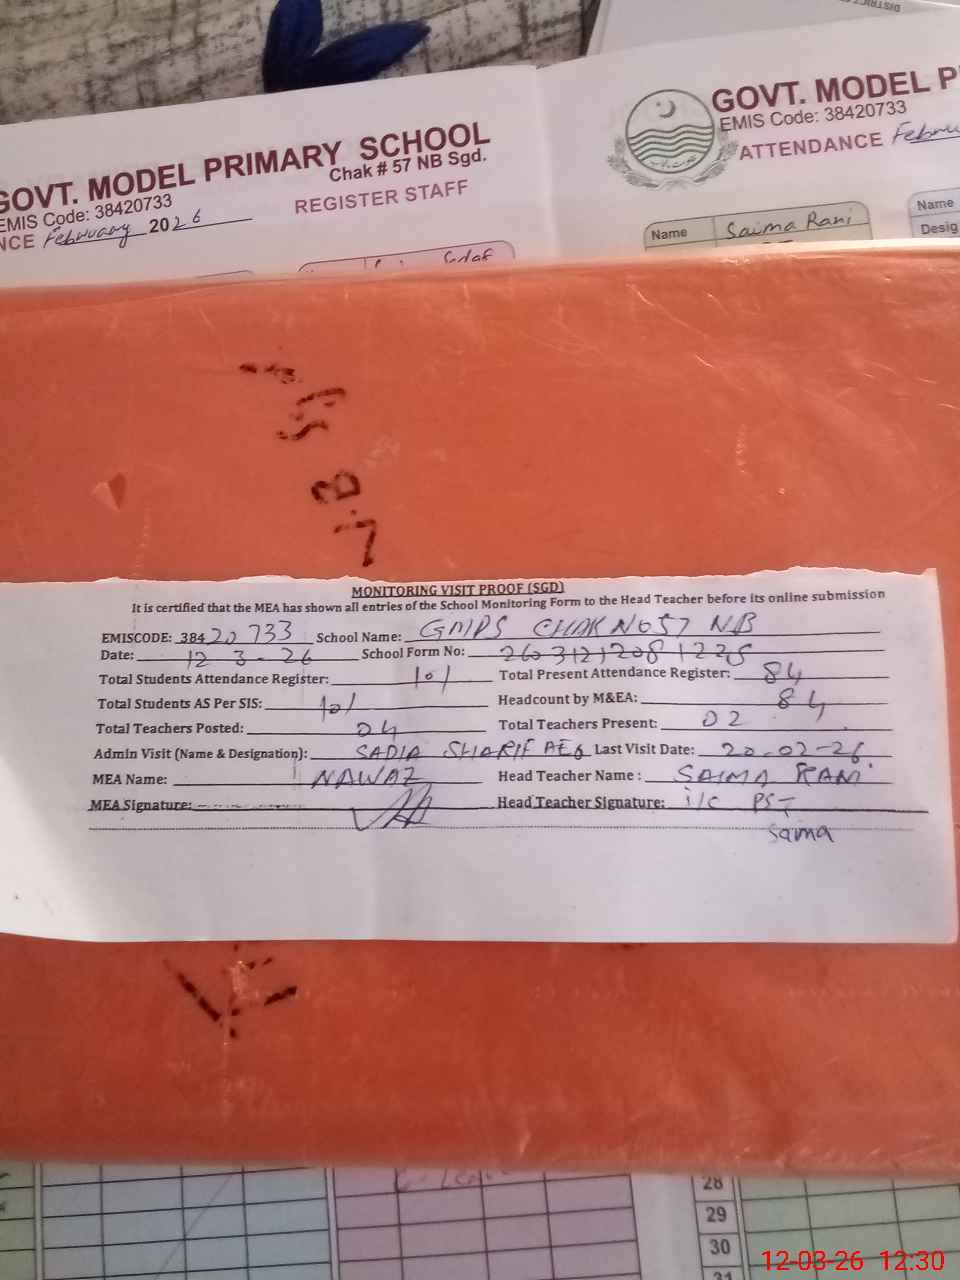 GOVT. MODEL PRIMARY SCHOOL
Chak # 57 NB Sgd.
EMIS Code: 38420733
NCE February 2026
REGISTER STAFF
GOVT. MODEL P
EMIS Code: 38420733
ATTENDANCE Febru
Name Saima Rani
Name
Desig
Sadaf
N.B 57
MONITORING VISIT PROOF (SGD)
It is certified that the MEA has shown all entries of the School Monitoring Form to the Head Teacher before its online submission
EMISCODE: 38420733 School Name: GMPS CHAK NO 57 NB
Date: 12-3-26 School Form No: 26031212081225
Total Students Attendance Register: 101 Total Present Attendance Register: 84
Total Students AS Per SIS: 101 Headcount by M&EA: 84
Total Teachers Posted: 04 Total Teachers Present: 02
Admin Visit (Name & Designation): SADIA SHARIF AEO Last Visit Date: 20-02-26
MEA Name: NAWAZ Head Teacher Name: SAIMA RANI
MEA Signature: Head Teacher Signature: i/c PST
Saima
28
29
30
31
12-03-26 12:30